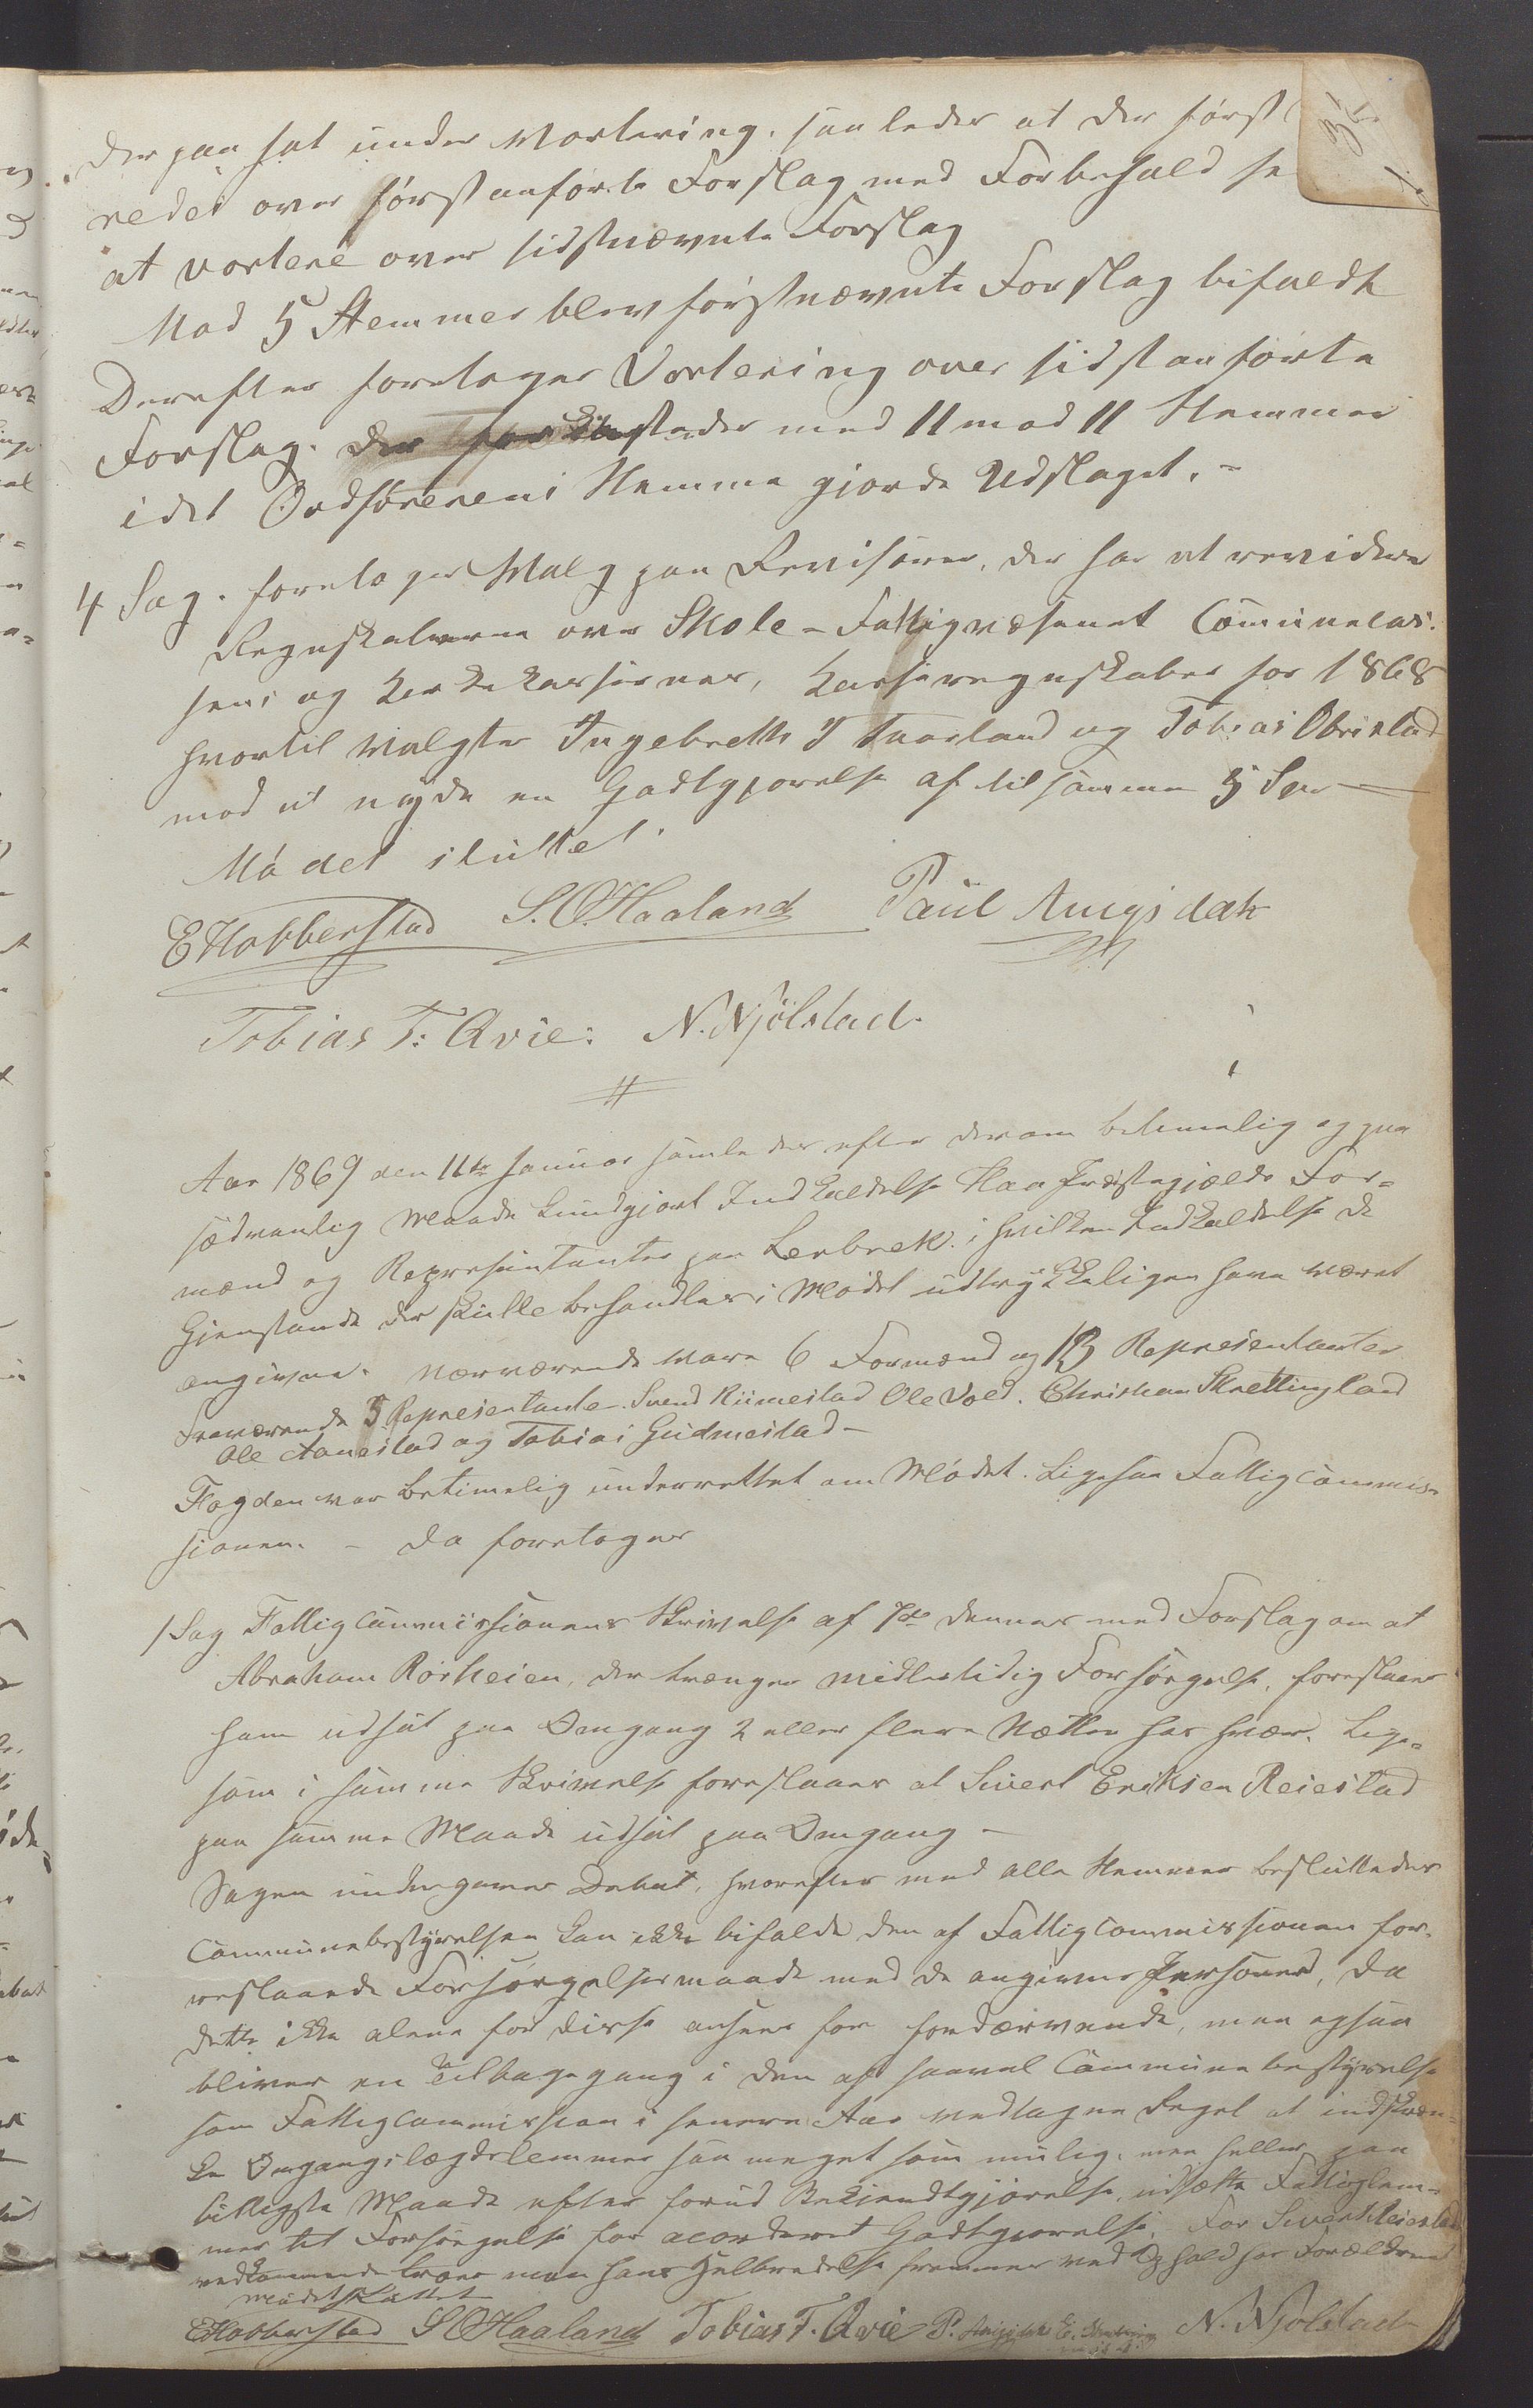 der paa sat under Vortering, saaledes at der først
redes over førstanførte Forslag med Forbehold se
at vortere over sidstnævnte Forslag
Mod 5 Stemmer blev førstnævnte Forslag bifaldt
Derefter foretages Vortering over sidstanførte
Forslag. der stedes med 11 mod 11 Stemmer
idet Ordførerens Stemme gjorde Udslaget. -
4 Sag. foretoges Valg paa Revisorer, der har at revidere
Regnskaberne over Skole- Fattigvæsenet Communecas¬
sens og Kirkekassernes, Kasseregnskaber for 1868
hvortil valgtes Ingebreth T Tuarland og Tobias Obrestad
mod at nyde en Godtgjørelse af tilsammen 5 Spd
Mødet sluttet.
E Hobberstad S. O. Haaland Paul Augsdah
Tobias T: Qvie: N. Njølstad.
Aar 1869 den 11te Januar samledes efter derom betimelig og paa
sædvanlig Maade kundgjort Indkaldelse Haa Præstegjælds For¬
mænd og Repræsentanter paa Lerbrek. i hvilken Indkaldelse de
Gjenstande der skulle behandles i Mødet udtrykkeligen have været
angivne. Nærværende vare 6 Formænd og 13 Representanter
Fraværende 5 Representante. Svend Riimestad Ole Vold. Christian Skrettingland
Ole Aanestad og Tobias Gudmestad -
Fogden var betimelig underrettet om Mødet. Ligesaa Fattigcommis¬
sionen. - Da foretoges
1 Sag Fattigcommissionens Skrivelse af 7de dennes med Forslag om at
Abraham Rørheien, der trænger midlertidig Forsørgelse, foreslaaes
ham udsat paa Omgang 2 eller flere Nætter hos hver. Lige¬
som i samme Skrivelse foreslaaes at Sivert Eriksen Reiestad
paa samme Maade udsat paa Omgang -
Sagen undergaves Debat, hvorefter med alle Stemmer besluttedes
Communebestyrelsen kan ikke bifalde den af Fattigcommissionen for¬
reslaaede Forsørgelsesmaade med de angivne Personer, da
dette ikke alene for disse ansees for fordærvende, men ogsaa
bliver en Tilbagegang i den af saavel Communebestyrelse
som Fattigcommission i senere Aar vedtagne Regel at indskræn¬
ke Omgangslægdslemmer saa meget som mulig, men heller paa
billigste Maade efter forud Bekjendtgjørelse, udsætte Fattiglem¬
mer til Forsørgelse for acorderet Godtgjørelse. For Sivert Reiestad
vedkommende troer man hans Helbredelse fremmes ved Ophold hos Forældrene
Mødet sluttet
E Hobberstad S O Haaland Tobias T. Qvie P. N. Njølstad